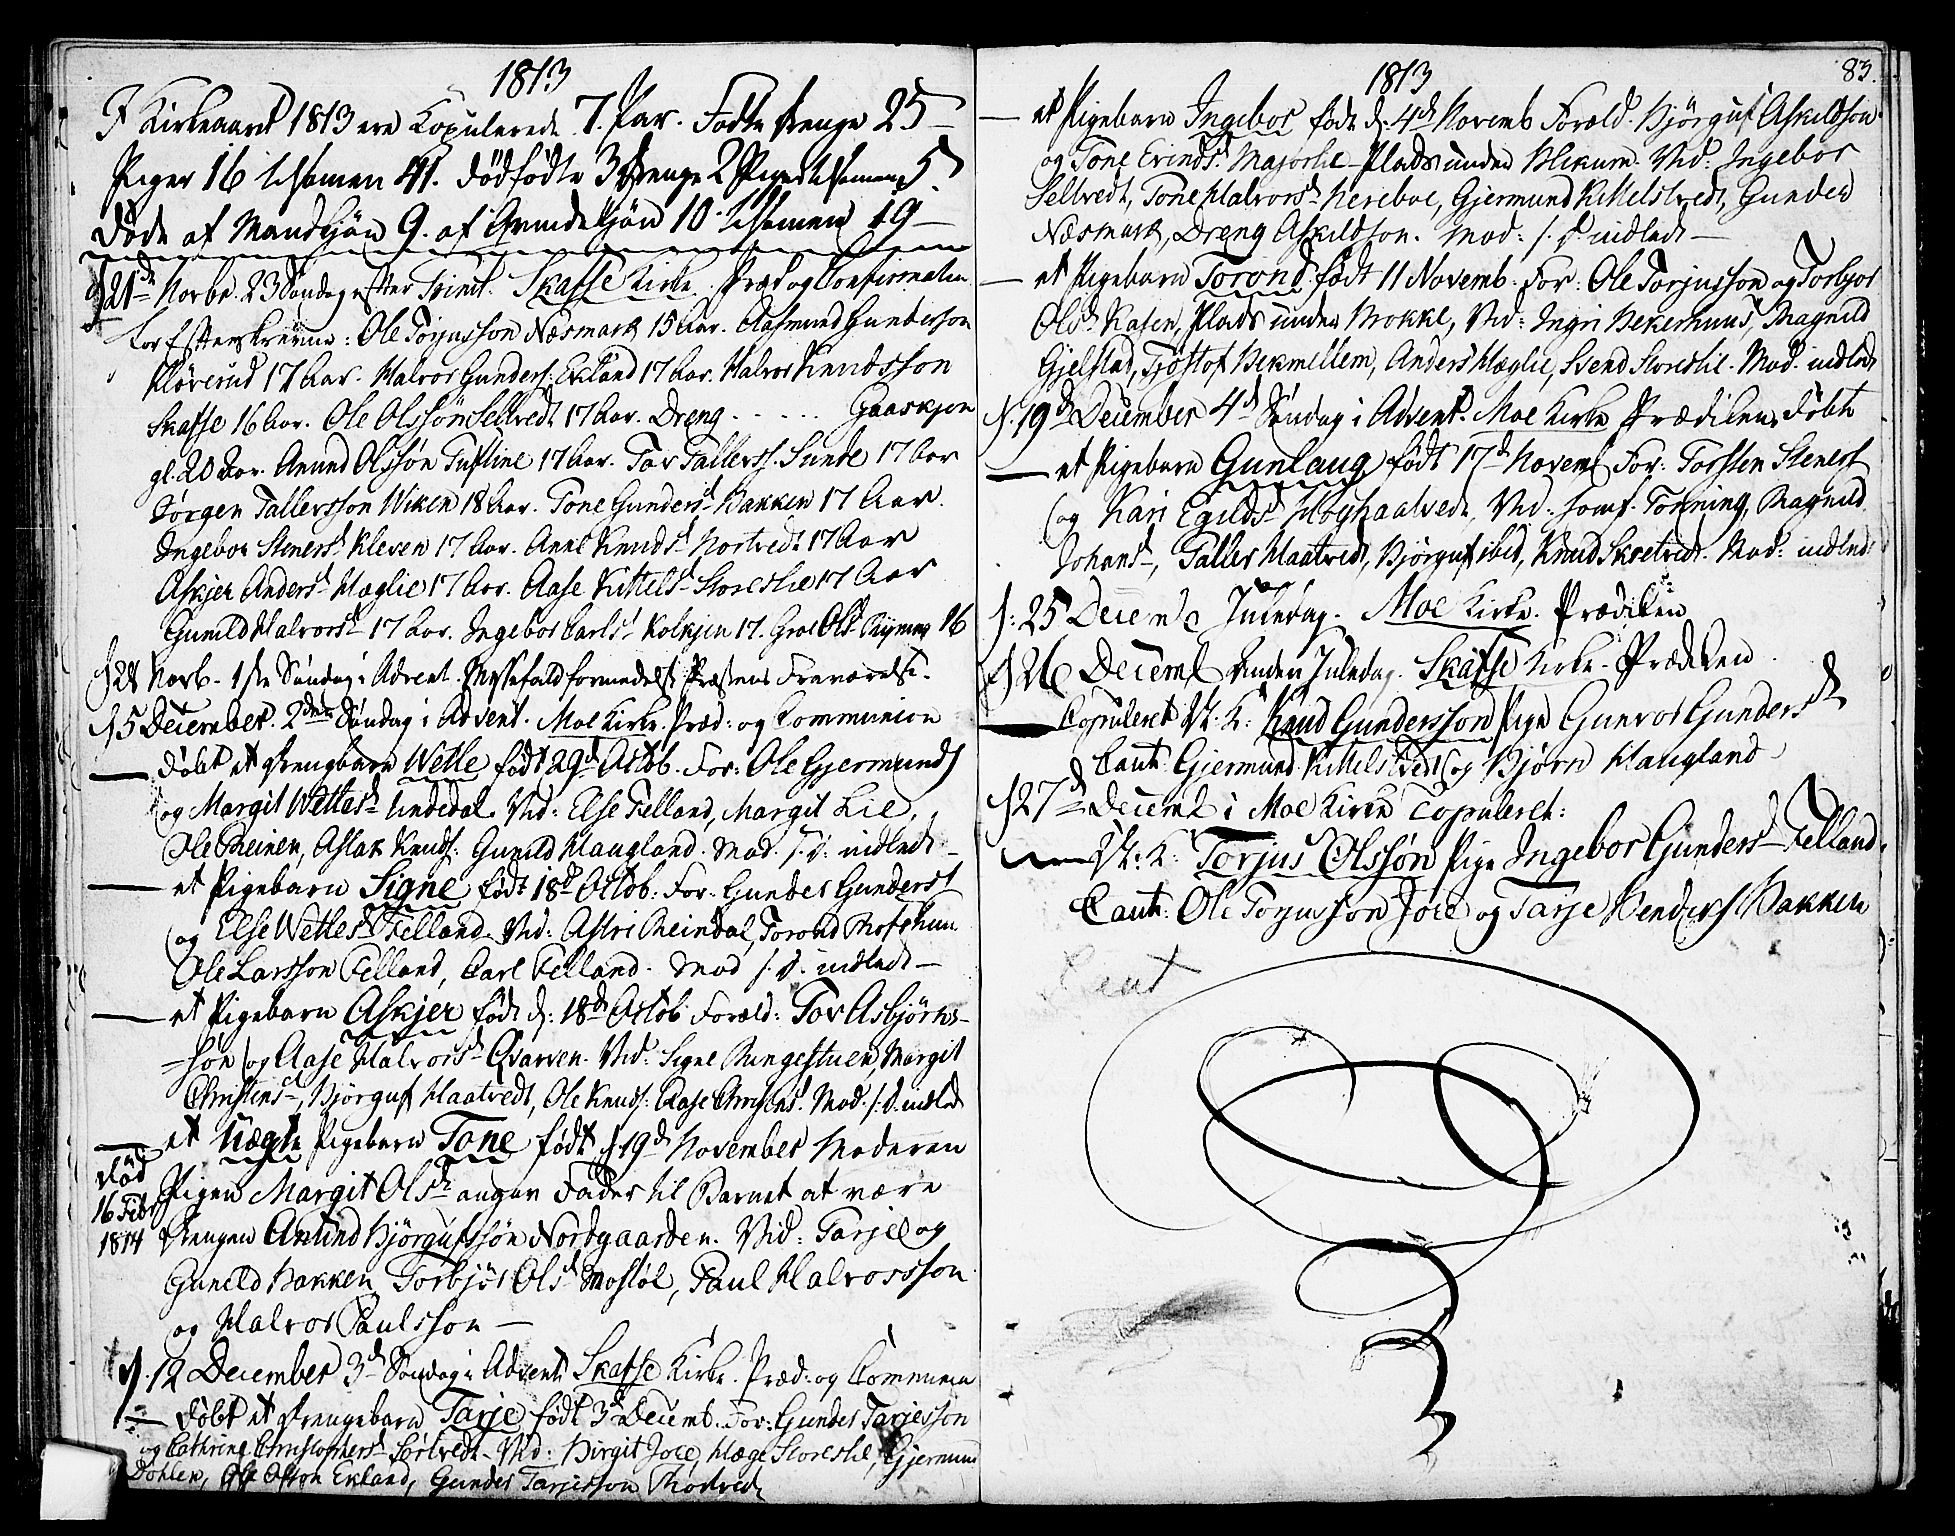 1813
I Kirkeaaret 1813 ere Copulerede 7. Par. Födte Drenge 25 –
Piger 16 tilsamen 41. Dödfödte 3 Drenge 2 Piger tilsamen 5.
Döde af Mandkjön 9. af Qvindekjön 10 tilsamen 19 –
d 21de Novbr. 23 Söndag efter Trinit. Skafse Kirke. Præd og Confirmation
for Efterskrevne: Ole Torjusson Næsmark 15 Aar. Aasmund Gundersson
Klöverud 17 Aar. Halvor Gunders: Ekland 17 Aar. Halvor Knudsson
Skafse 16 Aar. Ole Olssön Sellvedt 17 Aar. Dreng . . . . . Gaaskjen
gl. 20 Aar. Anund Olssön Tuftine 17 Aar. Tov Tallefss. Sunde 17 Aar
Jörgen Tallefsson Wiken 18 Aar. Tone Gundersd Bakken 17 Aar.
Ingebor Stenersd Kleven 17 Aar. Anne Knudsd Nortvedt 17 Aar
Askjer Andersd Mæglie 17 Aar. Aase Kittelsd Storeslie 17 Aar
Gunild Halvorsd 17 Aar. Ingebor Carlsd Kolkjen 17. Groe Olsd Rynning 16
d 28 Novb. 1ste Söndag i Advent. Messefald formedelst Præstens Fraværelse.
d 5 December. 2den Söndag i Advent. Moe Kirke. Præd: og Communion
— Döbt et Drengbarn Wetle född 29d Octob. For: Ole Gjermunds
og Margit Wetlesd Undedal. Vid: Else Felland, Margit Lie,
Ole Reinen, Aslak Knuds: Gunild Haugland. Mod. s. d. indledt –
— et Pigebarn Signe födt 18d Octob: For. Gunder Gunders
og Else Wetlesd Felland. Vid: Astri Reindal, Torond
Ole Larsson Felland, Carl Felland. Mod s. d. indledt –
— et Pigebarn Askjer födt d: 18d Octob Foræld: Tov Asbjörns-
-sön og Aase Halvorsd Qvarven. Vid: Signe Ringestuen, Margit
Christensd, Björguf Haatvedt, Ole Knuds: Aase Mod. s. d. indledt
— et Uægte Pigebarn Tone födt d 19d November Moderen
Död
16 Febr
1814
Pigen Margit Olsd angav Fader til Barnet at være
Drengen Anund Björgufssön Nordgaarden. Vid: Tarjei og
Gunild Bakken, Torbjör Olsd Mostöl, Paul Halvorsson
og Halvor Paulsson –
d. 12 December 3d Söndag i Advent Skafse Kirke. Præd: og Communion
— Döbt et Drengebarn Tarje födt 3d Decemb. For: Gunder Tarjesson
og Cathrine Christophersd Sortvedt. Vid: Birgit Joee, Hæge Storeslie, Gjermund
Dohlen, Ole Olson Ekland, Gunder Tarjesson
1813
83.
— et Pigebarn Ingebor födt d. 4d Novemb Foræld. Björguf Askildson
og Tone Evindsd Majorlie Plads under Blekum. Vid: Ingebor
Sellvedt, Tone Halvorsd Nereboe, Gjermund Kittelstvedt, Gunder
Næsmark, Dreng Askildson. Mod: s. d. indledt –
— et Pigebarn Torond födt 11 Novemb. For: Ole Torjusson og Torbjor
Olsd Kasen, Plads under Mokke, Vid: Ingri Bekerhuus, Ragnild
Gjelstad, Tjöstof Bekmellem, Anders Mæglie, Svend Storeslie. Mod. indledt
d. 19d December 4d Söndag i Advent. Moe Kirke Prædiken. Döbt
— et Pigebarn Gunlaug födt 17d Novemb For: Torsten Steners
og Kari Egildsd Höghaatvedt, Vid. Jomf. Tonning, Ragnild
Johansd, Tallef Haatvedt, Björguf ibid, Knud Skoetvedt. Mod: indledt
d: 25 Decembr Juledag. Moe Kirke. Prædiken
d 26 Decemb Anden Juledag. Skafse Kirke. Prædiken
— Copuleret Uk: K: Knud Gundersson Pige Gunvor Gundersd
Caut: Gjermund Kittelstvedt og Björn Haugland
d 27d Decemb i Moe Kirke Copuleret:
— Uk: K: Torjus Olssön Pige Ingebor Gundersd Felland.
Caut: Ole Torjusson Joee og Tarje Bakken
Caut